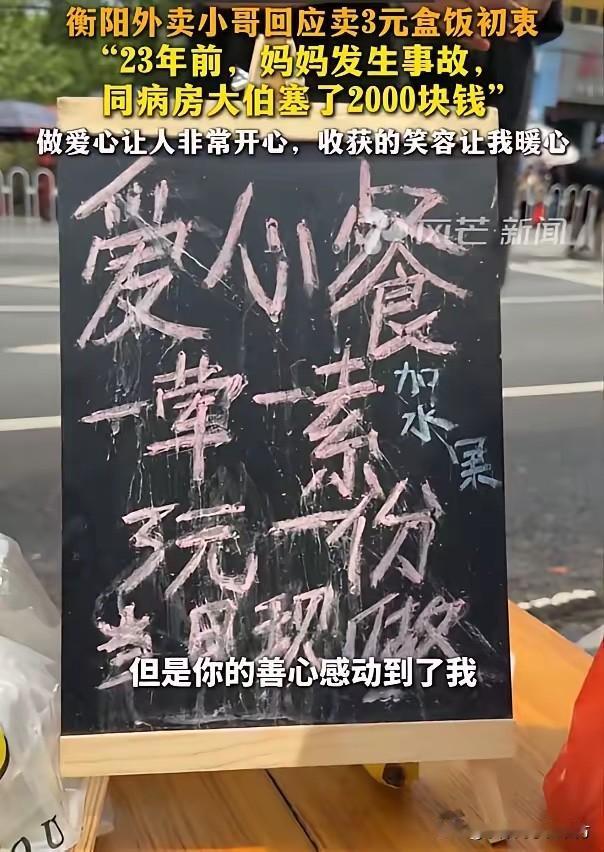 衡阳外卖小哥回应卖3元盒饭初衷
“23年前，妈妈发生事故，
同病房大伯塞了2000块钱”
做爱心让人非常开心，收获的笑容让我暖心
风芒新闻
爱心餐
一荤一素
加水果
3元一份
当日现做
但是你的善心感动到了我